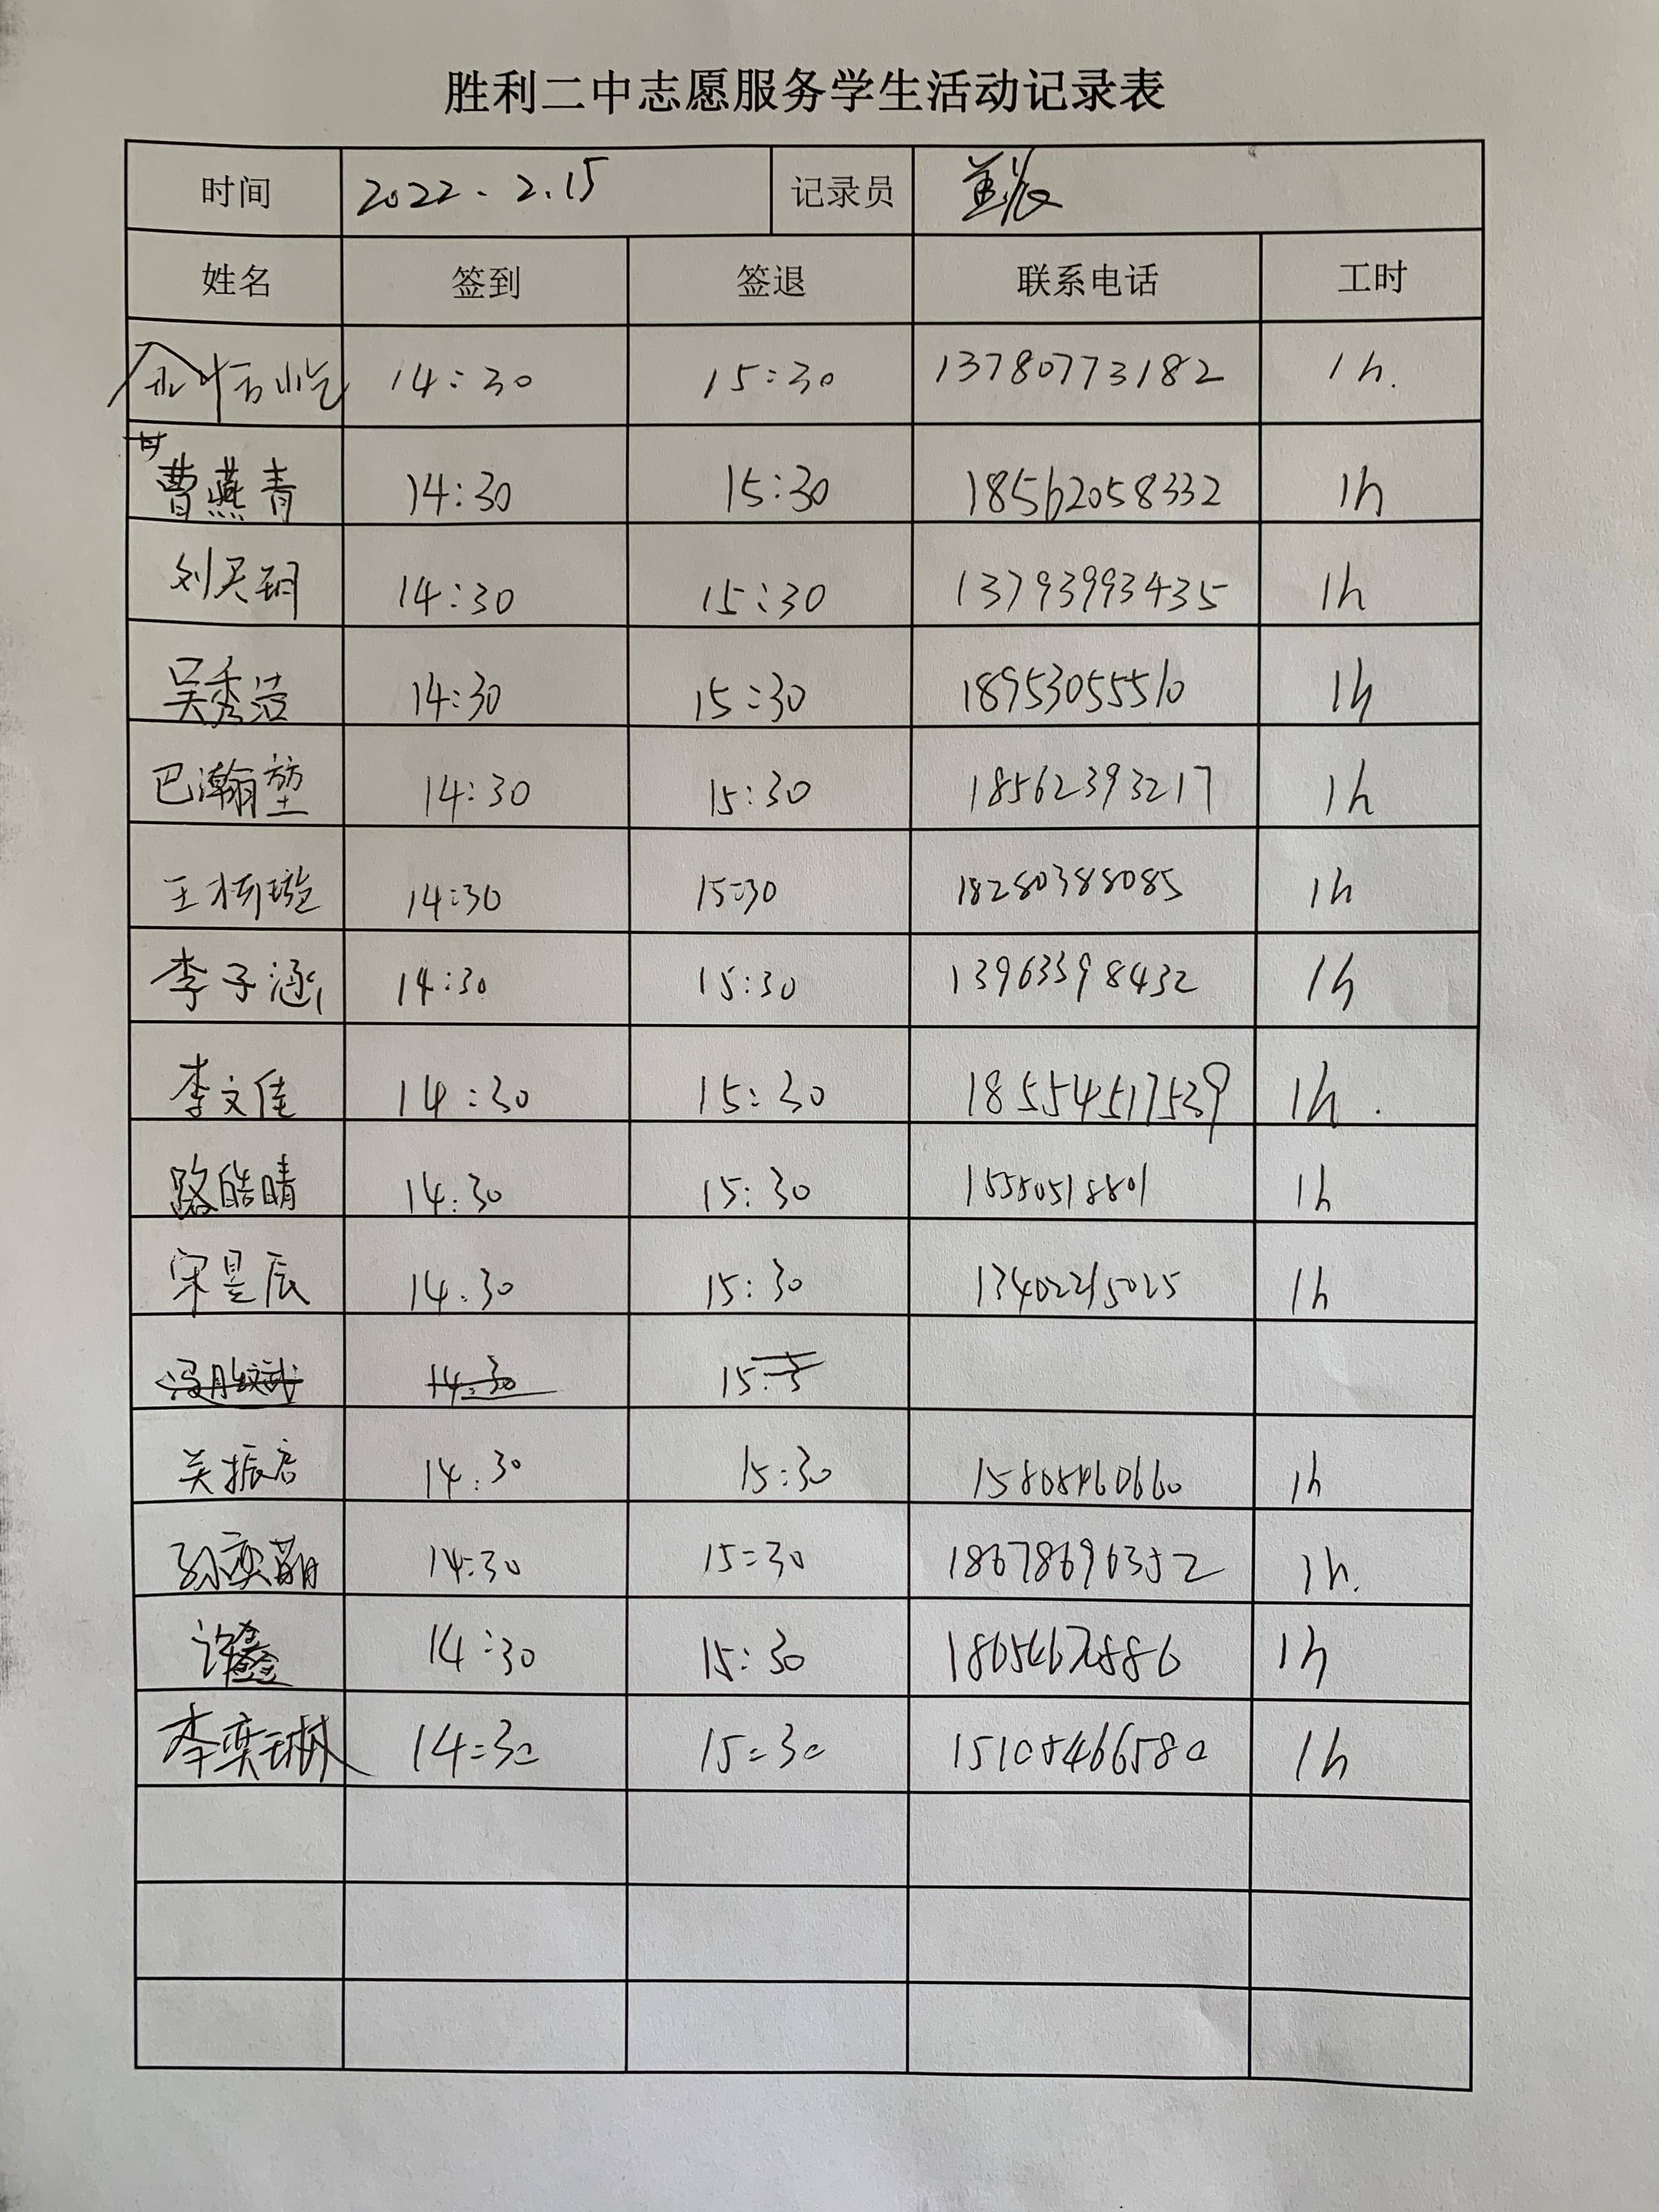 胜利二中志愿服务学生活动记录表
时间 2022.2.15 记录员
姓名 签到 签退 联系电话 工时
14:30 15:30 13780773182 1h.
曹燕青 14:30 15:30 18562058332 1h
刘天玥 14:30 15:30 13793993435 1h
吴秀洁 14:30 15:30 18953055510 1h
巴瀚堃 14:30 15:30 18562393217 1h
王楠璇 14:30 15:30 18280388085 1h
李子涵 14:30 15:30 13963398432 1h
李文佳 14:30 15:30 18554517539 1h.
路皓晴 14:30 15:30 15550518801 1h
宋昱辰 14:30 15:30 13402215025 1h
14:30 15:3
关振启 14:30 15:30 1h
孙奕萌 14:30 15:30 18678696352 1h.
许鑫 14:30 15:30 1h
李奕琳 14:30 15:30 15105466580 1h